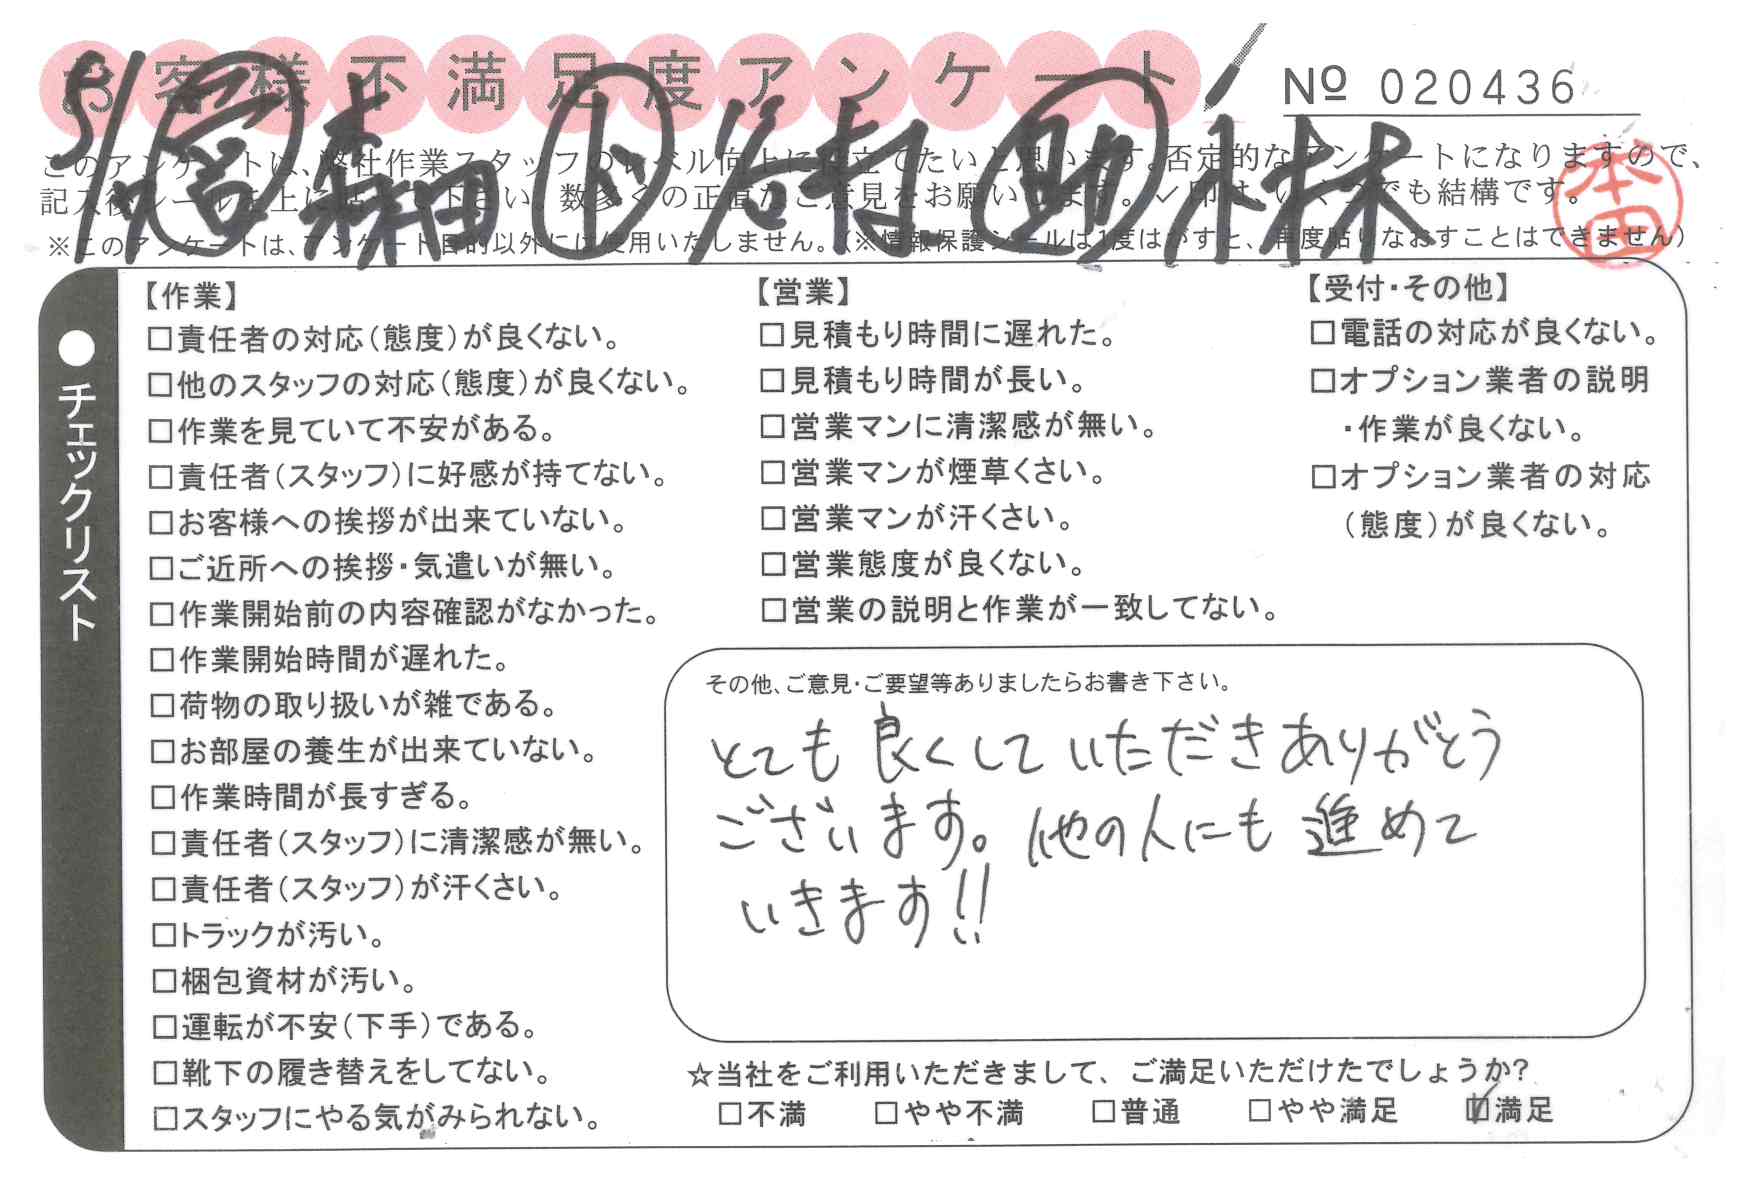 お客様不満足度アンケート
№ 020436
5/1 営 森田 ト 谷村 助 小林
このアンケートは、弊社作業スタッフのレベル向上に役立てたいと思います。否定的なアンケートになりますので、
記入後シールを上に貼って下さい。数多くの正直なご意見をお願いします。✓印は、いくつでも結構です。
※このアンケートは、アンケート目的以外には使用いたしません。(※情報保護シールは1度はがすと、再度貼りなおすことはできません)
本田
●チェックリスト
【作業】
□責任者の対応(態度)が良くない。
□他のスタッフの対応(態度)が良くない。
□作業を見ていて不安がある。
□責任者(スタッフ)に好感が持てない。
□お客様への挨拶が出来ていない。
□ご近所への挨拶・気遣いが無い。
□作業開始前の内容確認がなかった。
□作業開始時間が遅れた。
□荷物の取り扱いが雑である。
□お部屋の養生が出来ていない。
□作業時間が長すぎる。
□責任者(スタッフ)に清潔感が無い。
□責任者(スタッフ)が汗くさい。
□トラックが汚い。
□梱包資材が汚い。
□運転が不安(下手)である。
□靴下の履き替えをしてない。
□スタッフにやる気がみられない。
【営業】
□見積もり時間に遅れた。
□見積もり時間が長い。
□営業マンに清潔感が無い。
□営業マンが煙草くさい。
□営業マンが汗くさい。
□営業態度が良くない。
□営業の説明と作業が一致してない。
【受付・その他】
□電話の対応が良くない。
□オプション業者の説明
・作業が良くない。
□オプション業者の対応
(態度)が良くない。
その他、ご意見・ご要望等ありましたらお書き下さい。
とても良くしていただきありがとう
ございます。他の人にも進めて
いきます!!
☆当社をご利用いただきまして、ご満足いただけたでしょうか?
□不満 □やや不満 □普通 □やや満足 ☑満足